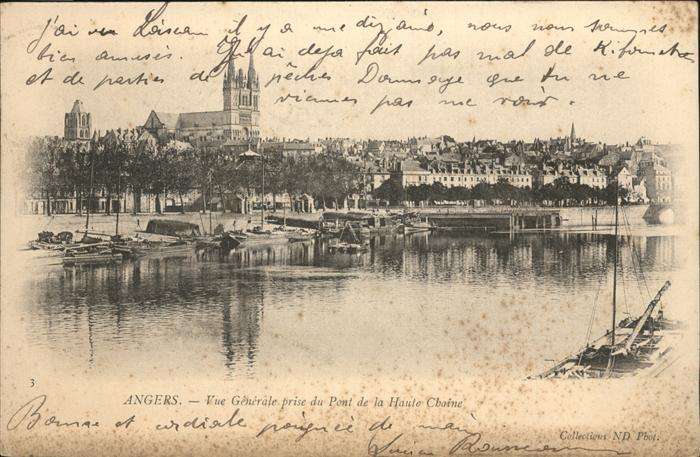 j'ai vu Loiseau il y a une dizaine, nous nous sommes
bien amusés. J'ai deja fait pas mal de Kilometres
et de parties de pêches Dommage que tu ne
viennes pas me voir.
3 ANGERS. — Vue Générale prise du Pont de la Haute Chaine
Bonne et cordiale poignée de main
Collections ND Phot.